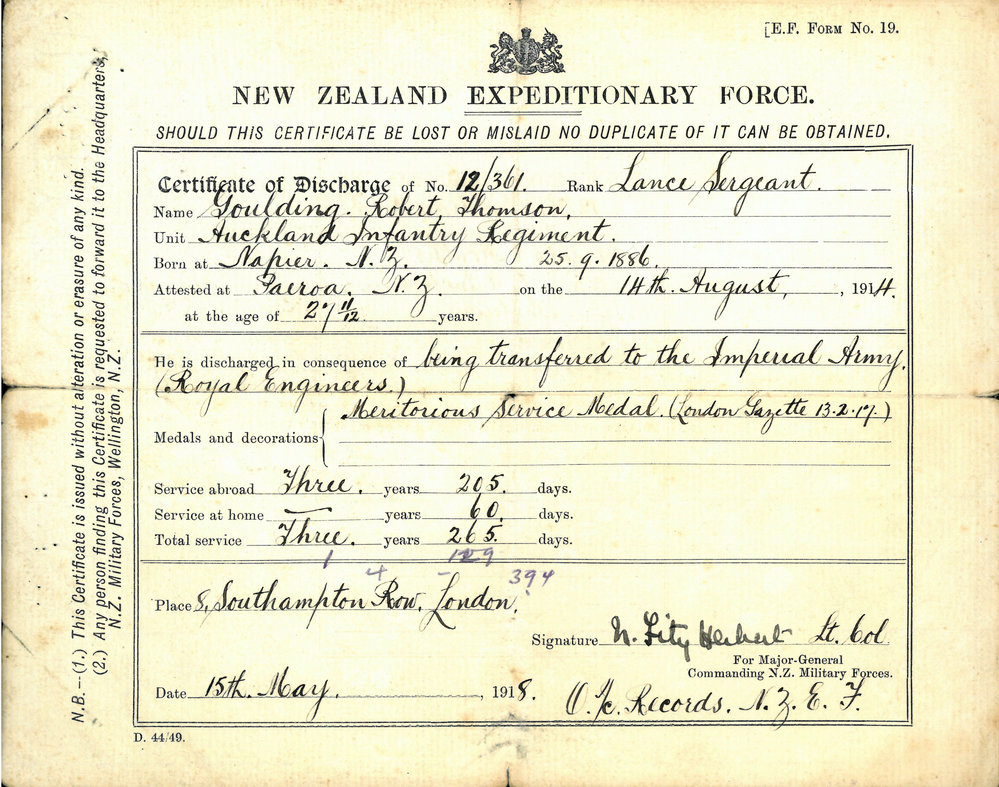 [E.F. FORM No. 19.
NEW ZEALAND EXPEDITIONARY FORCE.
SHOULD THIS CERTIFICATE BE LOST OR MISLAID NO DUPLICATE OF IT CAN BE OBTAINED.
Certificate of Discharge of No. 12/361. Rank Lance Sergeant.
Name Goulding. Robert, Thomson,
Unit Auckland Infantry Regiment.
Born at Napier. N.Z. 25.9.1886.
Attested at Paeroa. N.Z. on the 14th. August, , 1914.
at the age of 27 11/12 years.
He is discharged in consequence of being transferred to the Imperial Army.
(Royal Engineers.)
Meritorious Service Medal. (London Gazette 13.2.17.)
Medals and decorations
Service abroad Three. years 205. days.
Service at home — years 60. days.
Total service Three. years 265. days.
1 129
4 - 394
Place 8, Southampton Row, London.
Signature N. Fitz Herbert Lt. Col
For Major-General
Commanding N.Z. Military Forces.
Date 15th. May. , 1918.
O. i/c. Records. N.Z.E.F.
D. 44/49.
N.B.—(1.) This Certificate is issued without alteration or erasure of any kind.
(2.) Any person finding this Certificate is requested to forward it to the Headquarters,
N.Z. Military Forces, Wellington, N.Z.